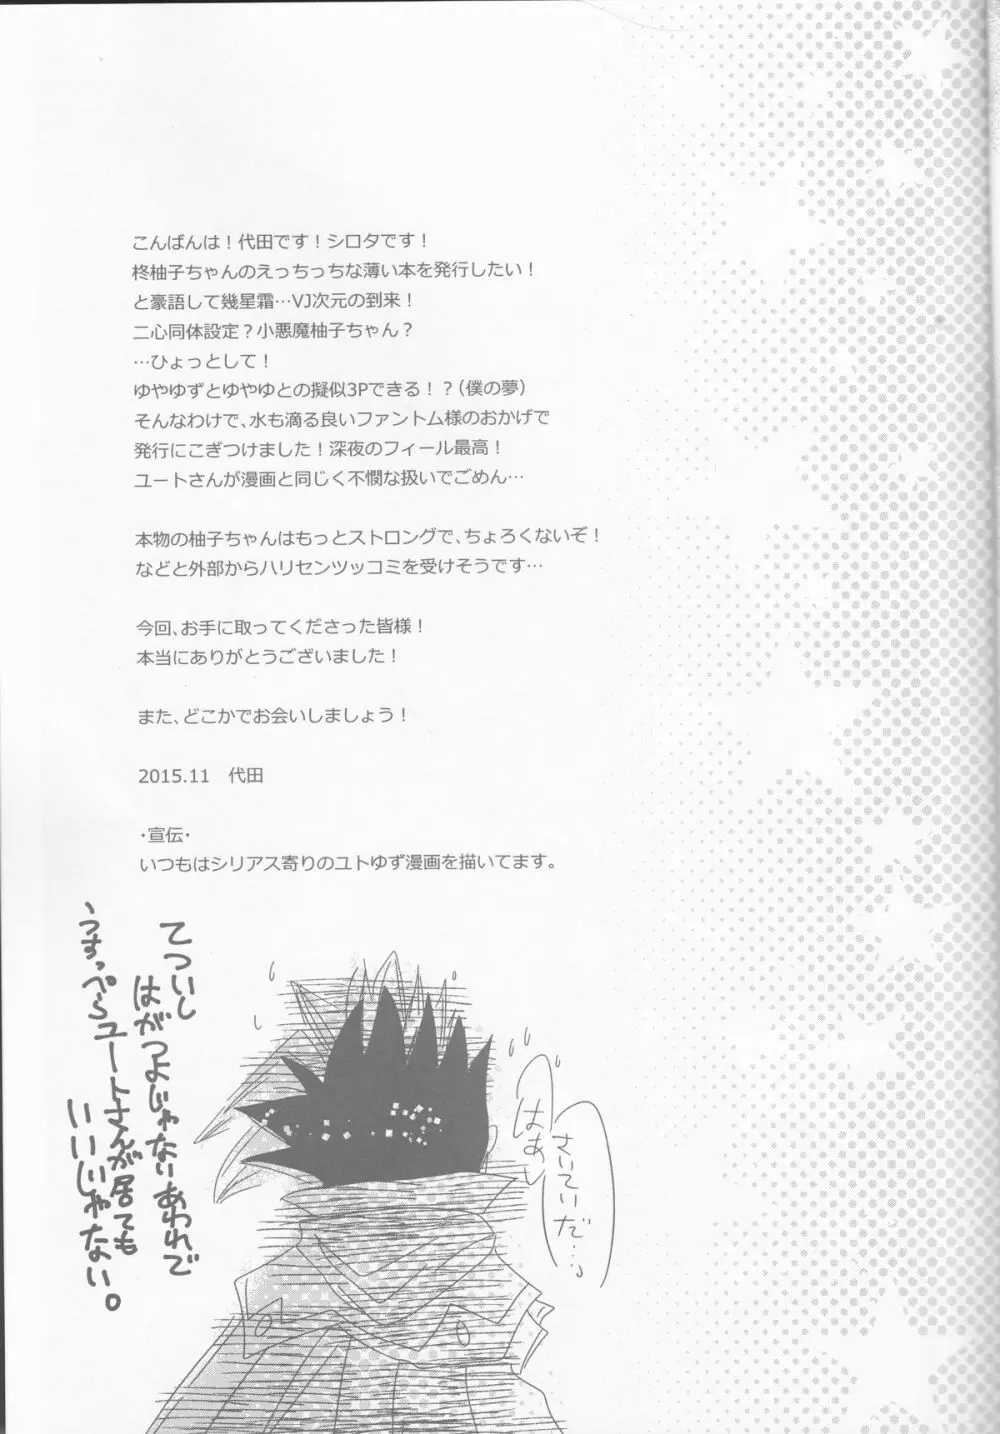 こんばんは！代田です！シロタです！
柊柚子ちゃんのえっちっちな薄い本を発行したい！
と豪語して幾星霜…VJ次元の到来！
二心同体設定？小悪魔柚子ちゃん？
…ひょっとして！
ゆやゆずとゆやゆとの擬似3Pできる！？（僕の夢）
そんなわけで、水も滴る良いファントム様のおかげで
発行にこぎつけました！深夜のフィール最高！
ユートさんが漫画と同じく不憫な扱いでごめん…
本物の柚子ちゃんはもっとストロングで、ちょろくないぞ！
などと外部からハリセンツッコミを受けそうです…
今回、お手に取ってくださった皆様！
本当にありがとうございました！
また、どこかでお会いしましょう！
2015.11　代田
・宣伝・
いつもはシリアス寄りのユトゆず漫画を描いてます。
はあ
さいていだ…。
てついし
はがつよじゃないあわれで
うすっぺらユートさんが居ても
いいじゃない。